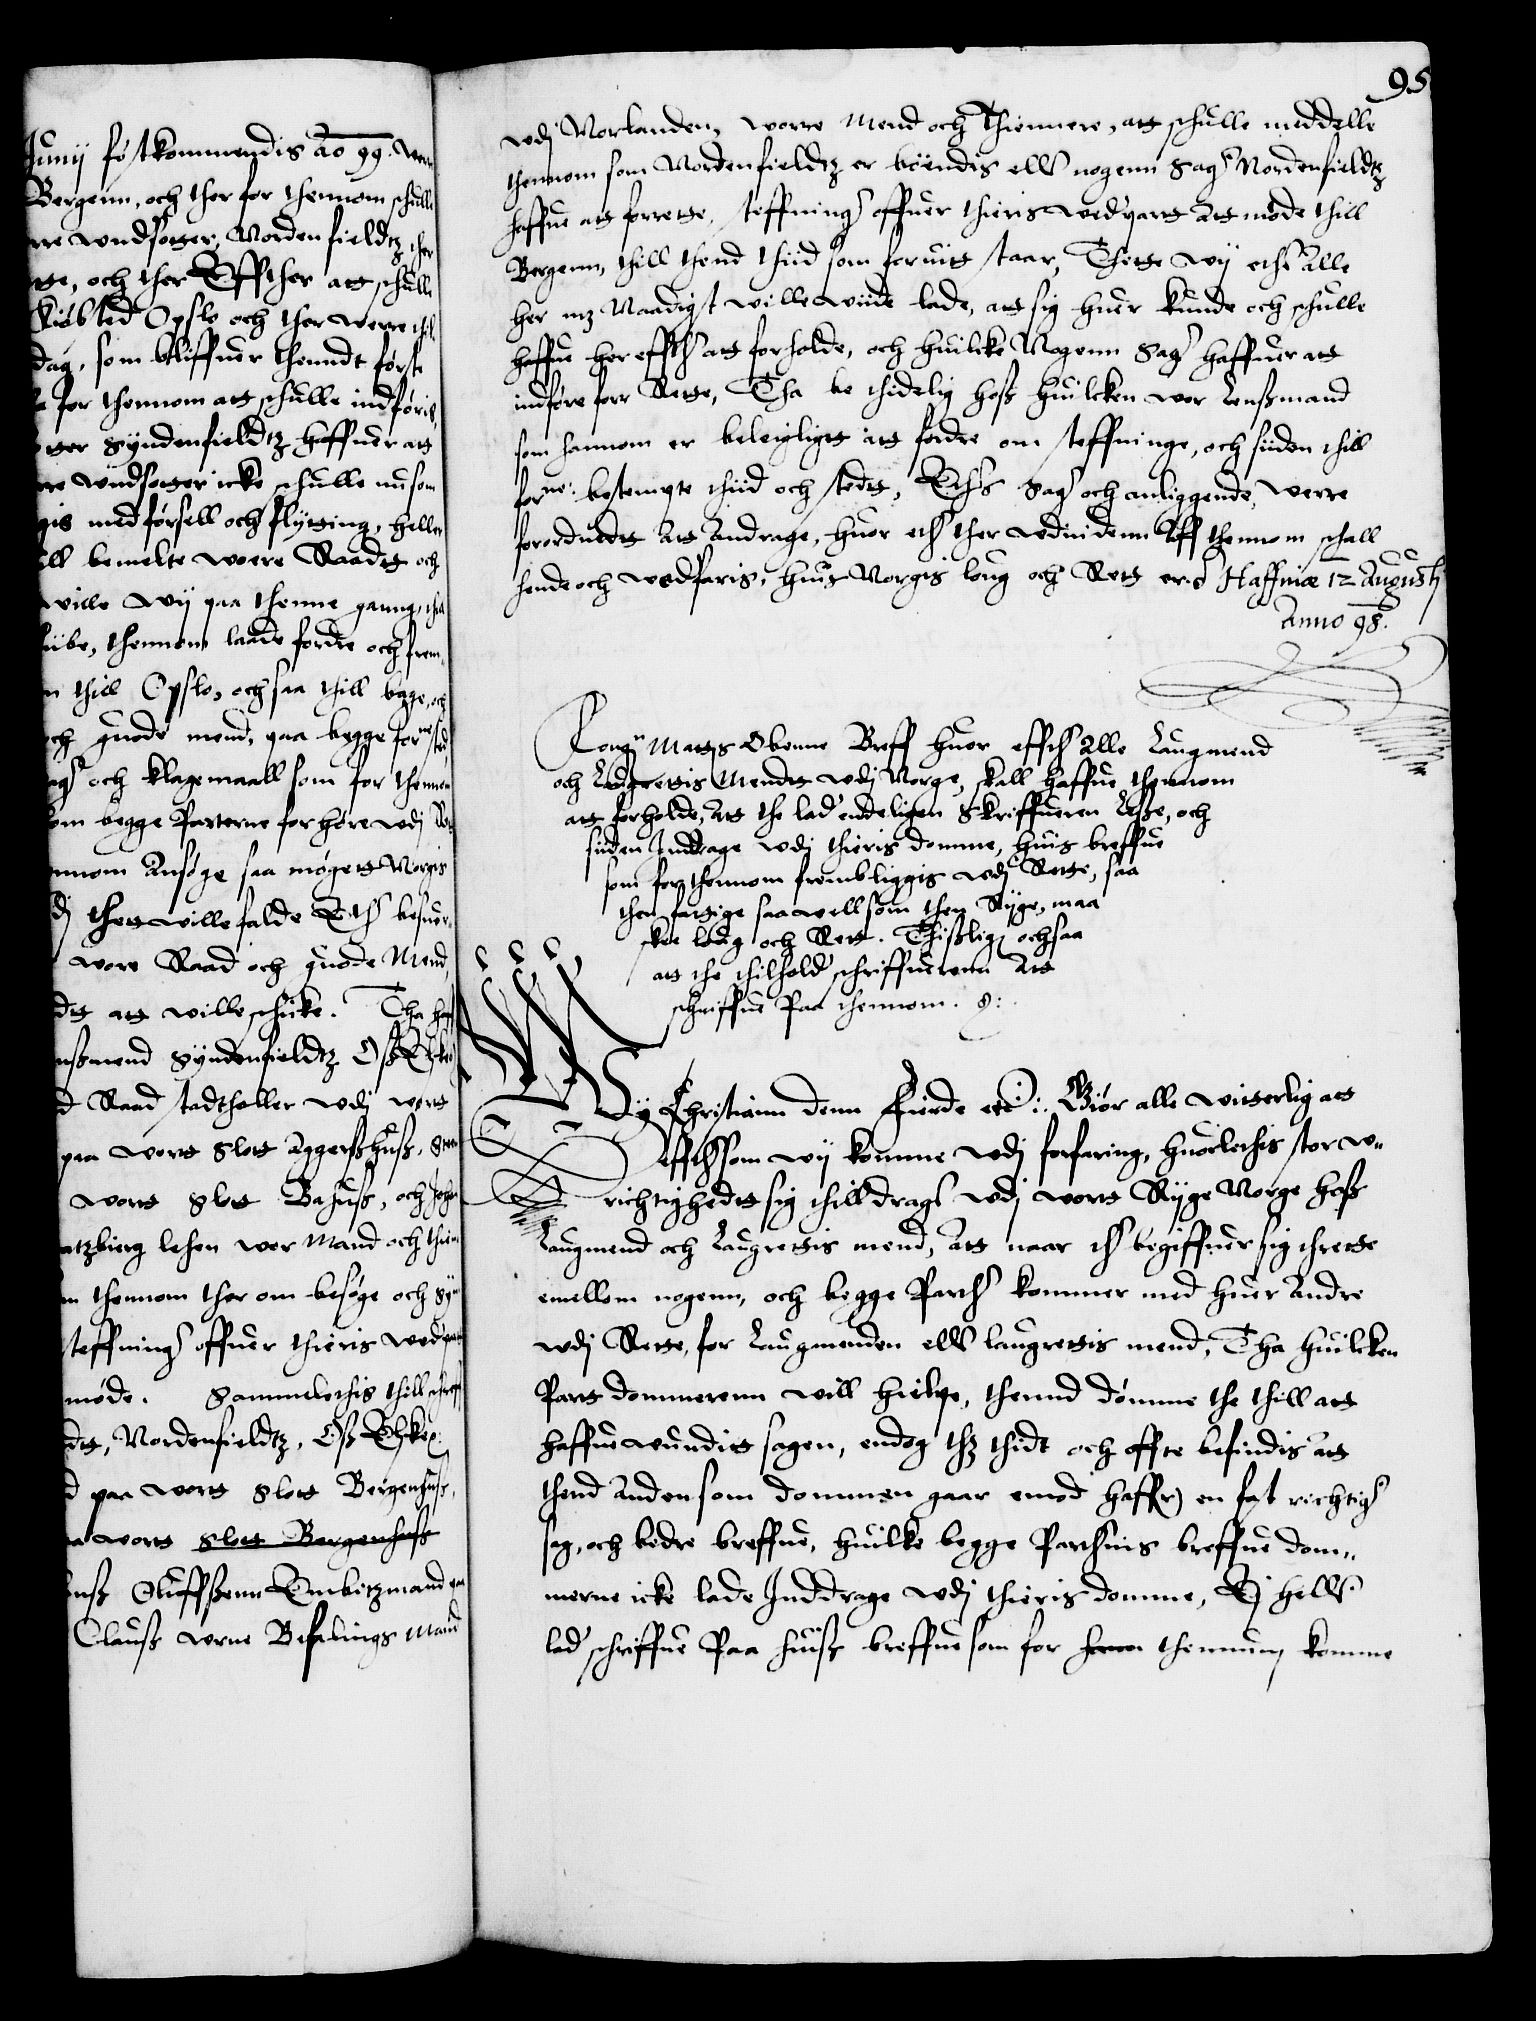 Junij føstkommendis Ao 99. werre
Bergenn, och ther for thennom schulle
rre wndsatter, Nordenfieldtz ther
tte, och ther Effther att schulle
Kiøbsted Opslo och ther werre thil
dag, som bliffuer thenndt første
for thennom att schulle indføris,
tter Syndenfieldtz haffuer att
re wndsatter icke schulle nu som
gis med førsell och flytting, heller
ill bemelte woere Raadtt och
wille wij paa thenne ganng, tha
liube, thennom laade fordre och frem„
n thill Opslo, och saa thill bage, och
ch guode mend, paa begge forne sted
ag och klagemaall som for thennom
som begge Parterne forhøre wdj Rett
nnom Ansøge saa møgett Norgis
dj thett wille falde Eth besuer„
wore Raad och guode Mend,
dtt att wille schicke. Tha haff
nßmend Syndenfieldtz Oß Elske
d Raad stadtholler wdj wortt
paa wortt Slott Aggerßhuß, Steen
wortt Slott Bahuß, och John
atzbierg lehen wor Mand och thien
m thennom ther om besøge och Sy„
steffning offuer thieris wedpart
møde. Sammelethis thillschreff
dtt, Nordenfieldtz, Oß Elske:
d paa wortt Slott Bergenhuß,
a wortt Slott Bergenhuß
enß Oluffßenn Embitzmand paa
Clauß wrne Befalings Mand
95
wdj Norlanden, worre Mend och Thiennere, att schulle meddelle
thennom som Nordenfieldtz er boendis eller nogenn Sag Nordenfieldtz
haffue att forrette, steffning offuer thieris wedpart Att møde thill
Bergenn, thill thend thiid som foruitt staar, Thette wij ether Alle
her mz Naadigst wille wiide lade, att sig huer kunde och schulle
haffue her effther att forholde, och huilcke Nogenn Sag haffuer att
indføre for Rette, Tha be thidelig hoß huilcken wor Lenßmand
som hannom er beleigligt att fordre om steffninge, och siiden thill
forne: bestempte thiid och stedtt, Ethers Sag och anliggende, werre
forordnedtt Att Andrage, huor ether ther wdinidenn Aff thennom schall
hende och wedfaris, huis Norgis loug och Rett er. Haffniæ 12 Augusti
Anno 98.
Kong: Matts Obenne Breff huor effther Alle Laugmend
och Laugrettis Mendtt wdj Norge, skall haffue thennom
att forholde, Att the lad endeligen Skriffueren Leße, och
siiden Inddrage wdj thieris domme, huis breffue
som for thennom frembliggis wdj Rette, saa
then fattige saa well som then Ryge, maa
skee loug och Rett. Thißlig ochsaa
att the thilhold schriffuerenn Att
schriffue Paa thennom. 8:
Wij Christiann denn Fierde etc: Giør alle witterlig att
effthersom wij komme wdj forfaring, huorlethis stor w„
richtighedtt sig thilldrager wdj wortt Ryge Norge hoß
Laugmend och Laugrettis mend, Att naar ther begiffuer sig thrette
emellem nogenn, och begge Parther kommer med huer Andre
wdj Rette, for Laugmanden eller laugrettis mend, Tha huilcken
Part dommerenn will hielpe, thennd dømme the thill att
haffue wundit sagen, endog thz thidt och offte befindis att
thend Anden som dommen gaar emod haff(r) en fast richtig
sag, och bedre breffue, huilke begge Parthernis breffue dom„
merne icke lade Inddrage wdj thieris domme, Ej heller
lad schriffue Paa huiß breffue som for thennum komme